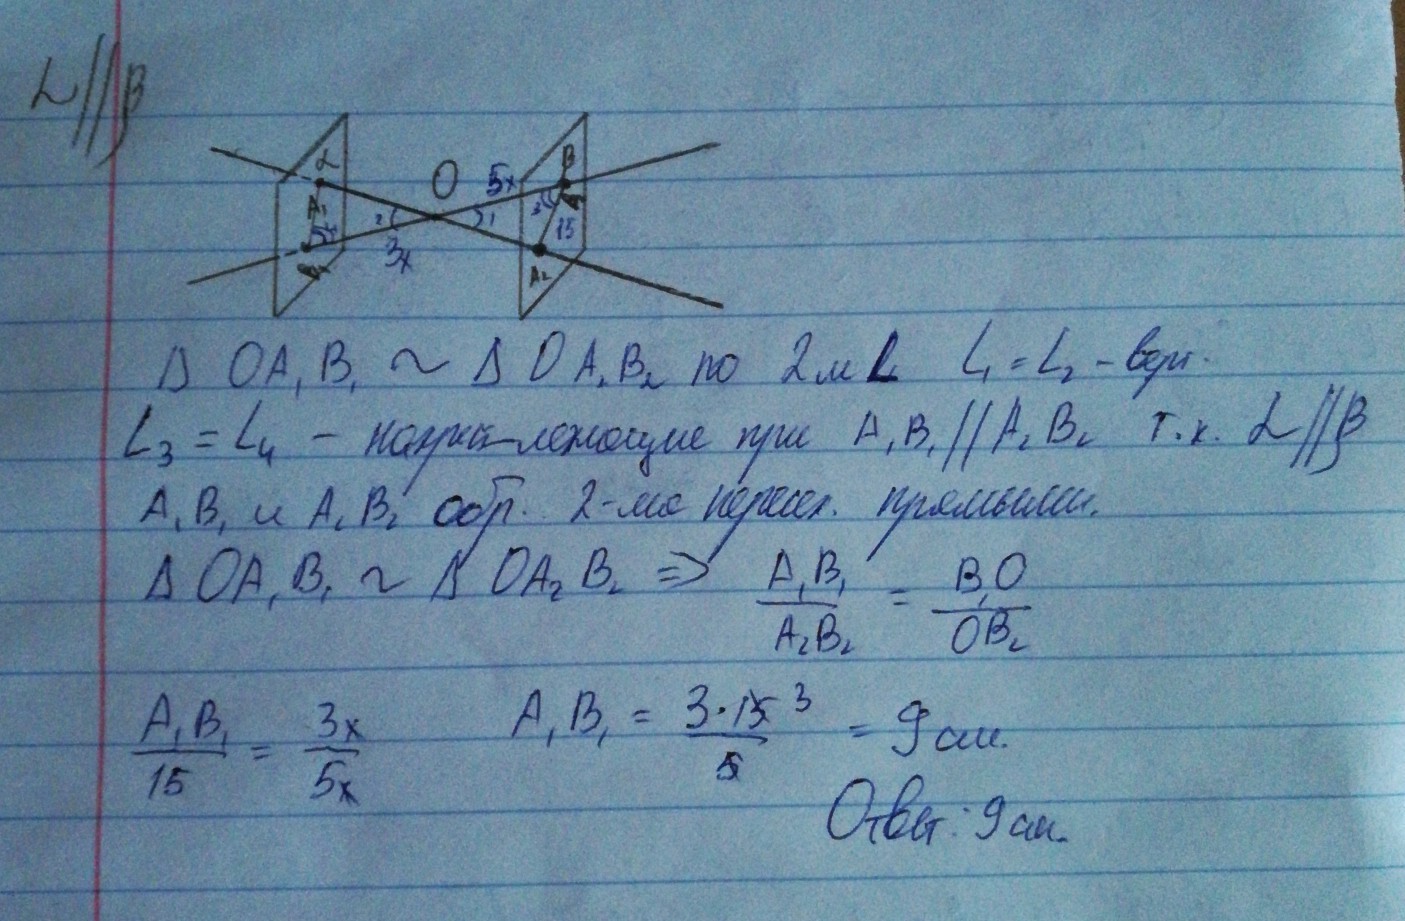 α//β
α O 5x β
A₁ 2 1 3 15
4 3x A₂
Δ OA₁B₁ ~ Δ OA₂B₂ по 2м ∠ ∠₁ = ∠₂ - верт.
∠₃ = ∠₄ - накрест-лежащие при A₁B₁//A₂B₂ т.к. α//β
A₁B₁ и A₂B₂ обр. 2-мя перес. прямыми.
Δ OA₁B₁ ~ Δ OA₂B₂ => A₁B₁/A₂B₂ = B₁O/OB₂
A₁B₁/15 = 3x/5x A₁B₁ = 3·15 3/5 = 9 см.
Ответ: 9 см.